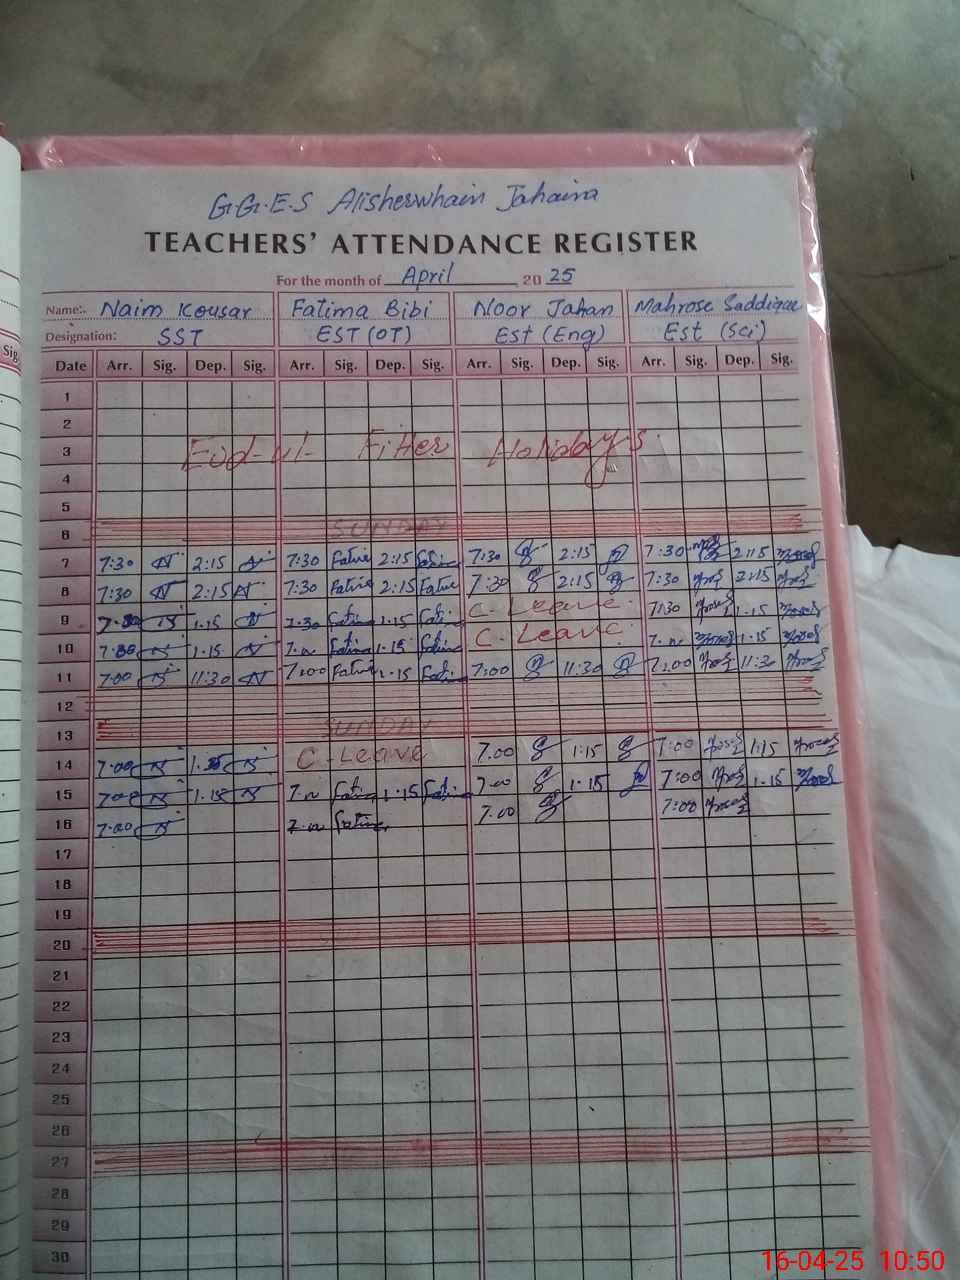 G.G.E.S Alisherwhain Jahaina
TEACHERS' ATTENDANCE REGISTER
For the month of April 2025
Name:. Naim Kousar Fatima Bibi Noor Jahan Mahrose Saddique
Designation: SST EST (OT) Est (Eng) Est (Sci)
Sig.
Date Arr. Sig. Dep. Sig. Arr. Sig. Dep. Sig. Arr. Sig. Dep. Sig. Arr. Sig. Dep. Sig.
1
2
3 Eid-ul- Fitter Holidays
4
5
6 SUNDAY
7 7:30 2:15 7:30 2:15 7:30 2:15 7:30 2:15
8 7:30 2:15 7:30 2:15 7:30 2:15 7:30 2:15
9 1.15 7.30 1.15 C-Leave 7:30 1.15
10 1.15 1.15 C-Leave 1.15
11 7:00 11:30 7:00 1.15 7:00 11:30 7:00 11:30
12
13 SUNDAY
14 7.00 C-Leave 7.00 1:15 7:00 1:15
15 7.00 1.15 1.15 1.15 7:00 1.15
16 7.00 7.00 7:00
17
18
19
20
21
22
23
24
25
26
27
28
29
30
16-04-25 10:50